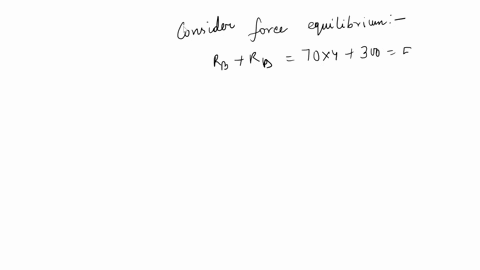 Consider force equilibrium:-
R_B + R_D = 70×4 + 300 =